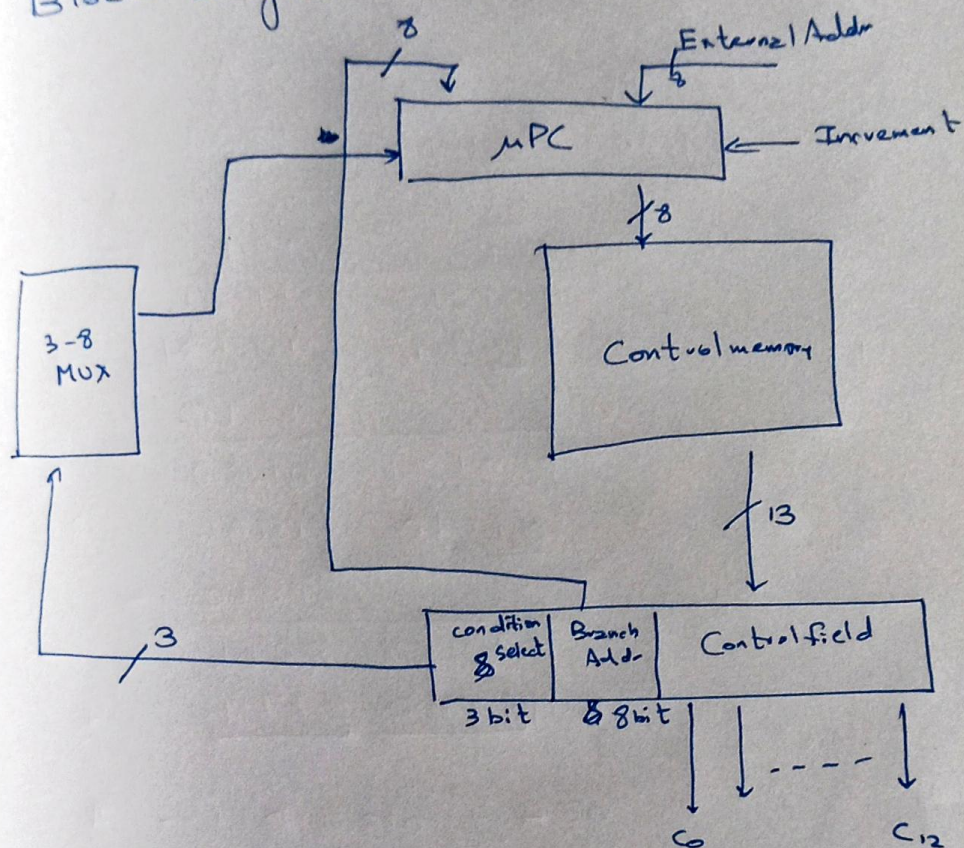 8
External Addr
8
μPC
Increment
8
3-8
MUX
Control memory
13
3
condition
select
Branch
Addr
Control field
3 bit
8 bit
C0
C12